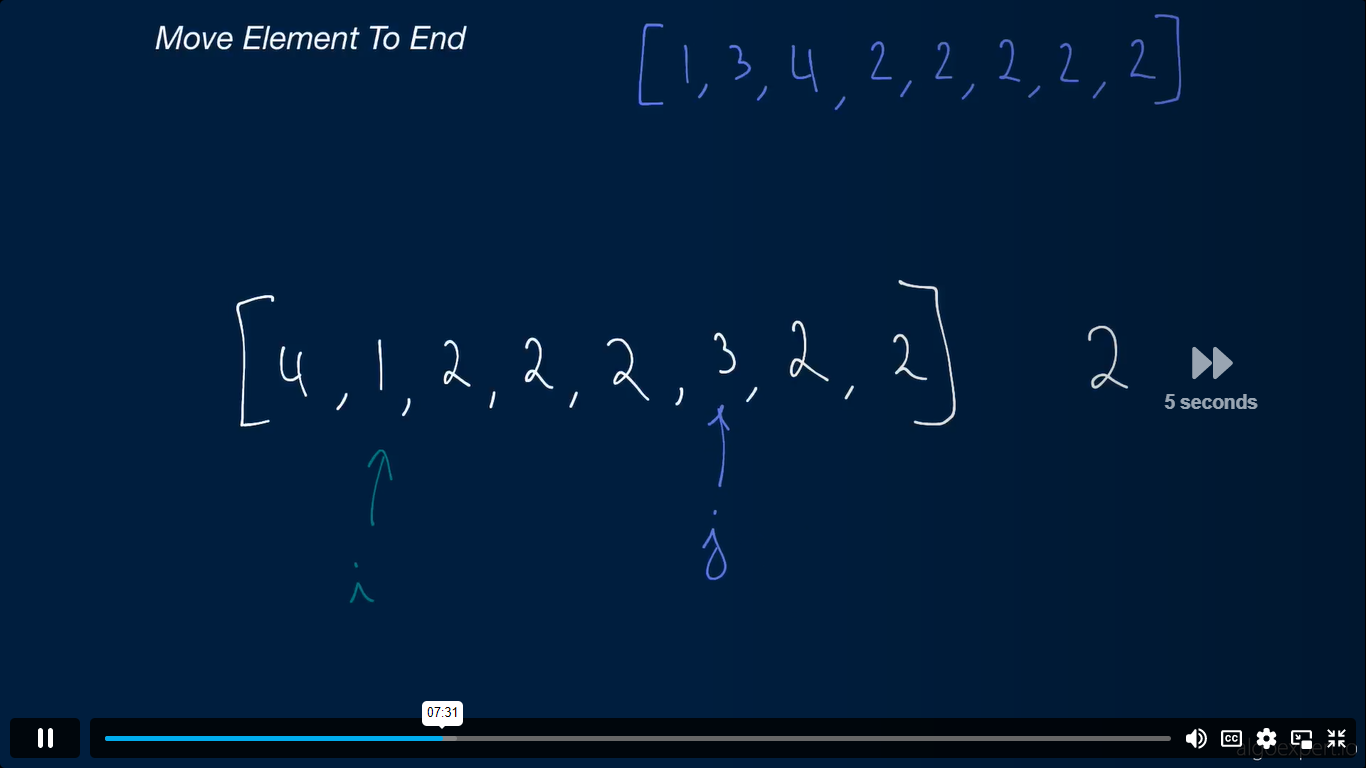 Move Element To End
[1, 3, 4, 2, 2, 2, 2, 2]
[4, 1, 2, 2, 2, 3, 2, 2] 2
5 seconds
i
j
07:31
CC
algoexpert.io